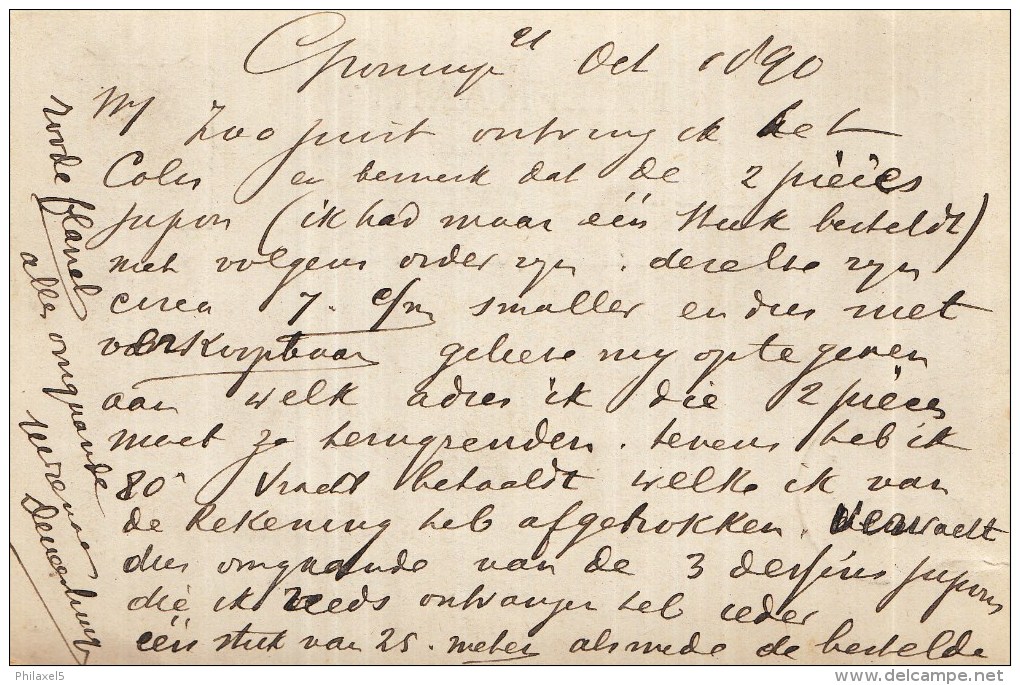 21 Oct 1890
Zoo juist ontving ik het
Colis en bemerk dat de 2 pièces
jupon (ik had maar één stuk besteldt)
niet volgens order zyn. dezelve zyn
circa 7. c/m smaller en dus niet
verkoopbaar gelieve my op te geven
aan welk adres ik die 2 pièces
moet terugzenden. tevens heb ik
80 Vracht betaaldt welke ik van
de Rekening heb afgetrokken. Verwacht
dus omgaande van de 3 dessins jupons
die ik reeds ontvangen heb ieder
één stuk van 25. meter alsmede de bestelde
roode flanel
alles omgaande
Philaxel5
delcampe.net